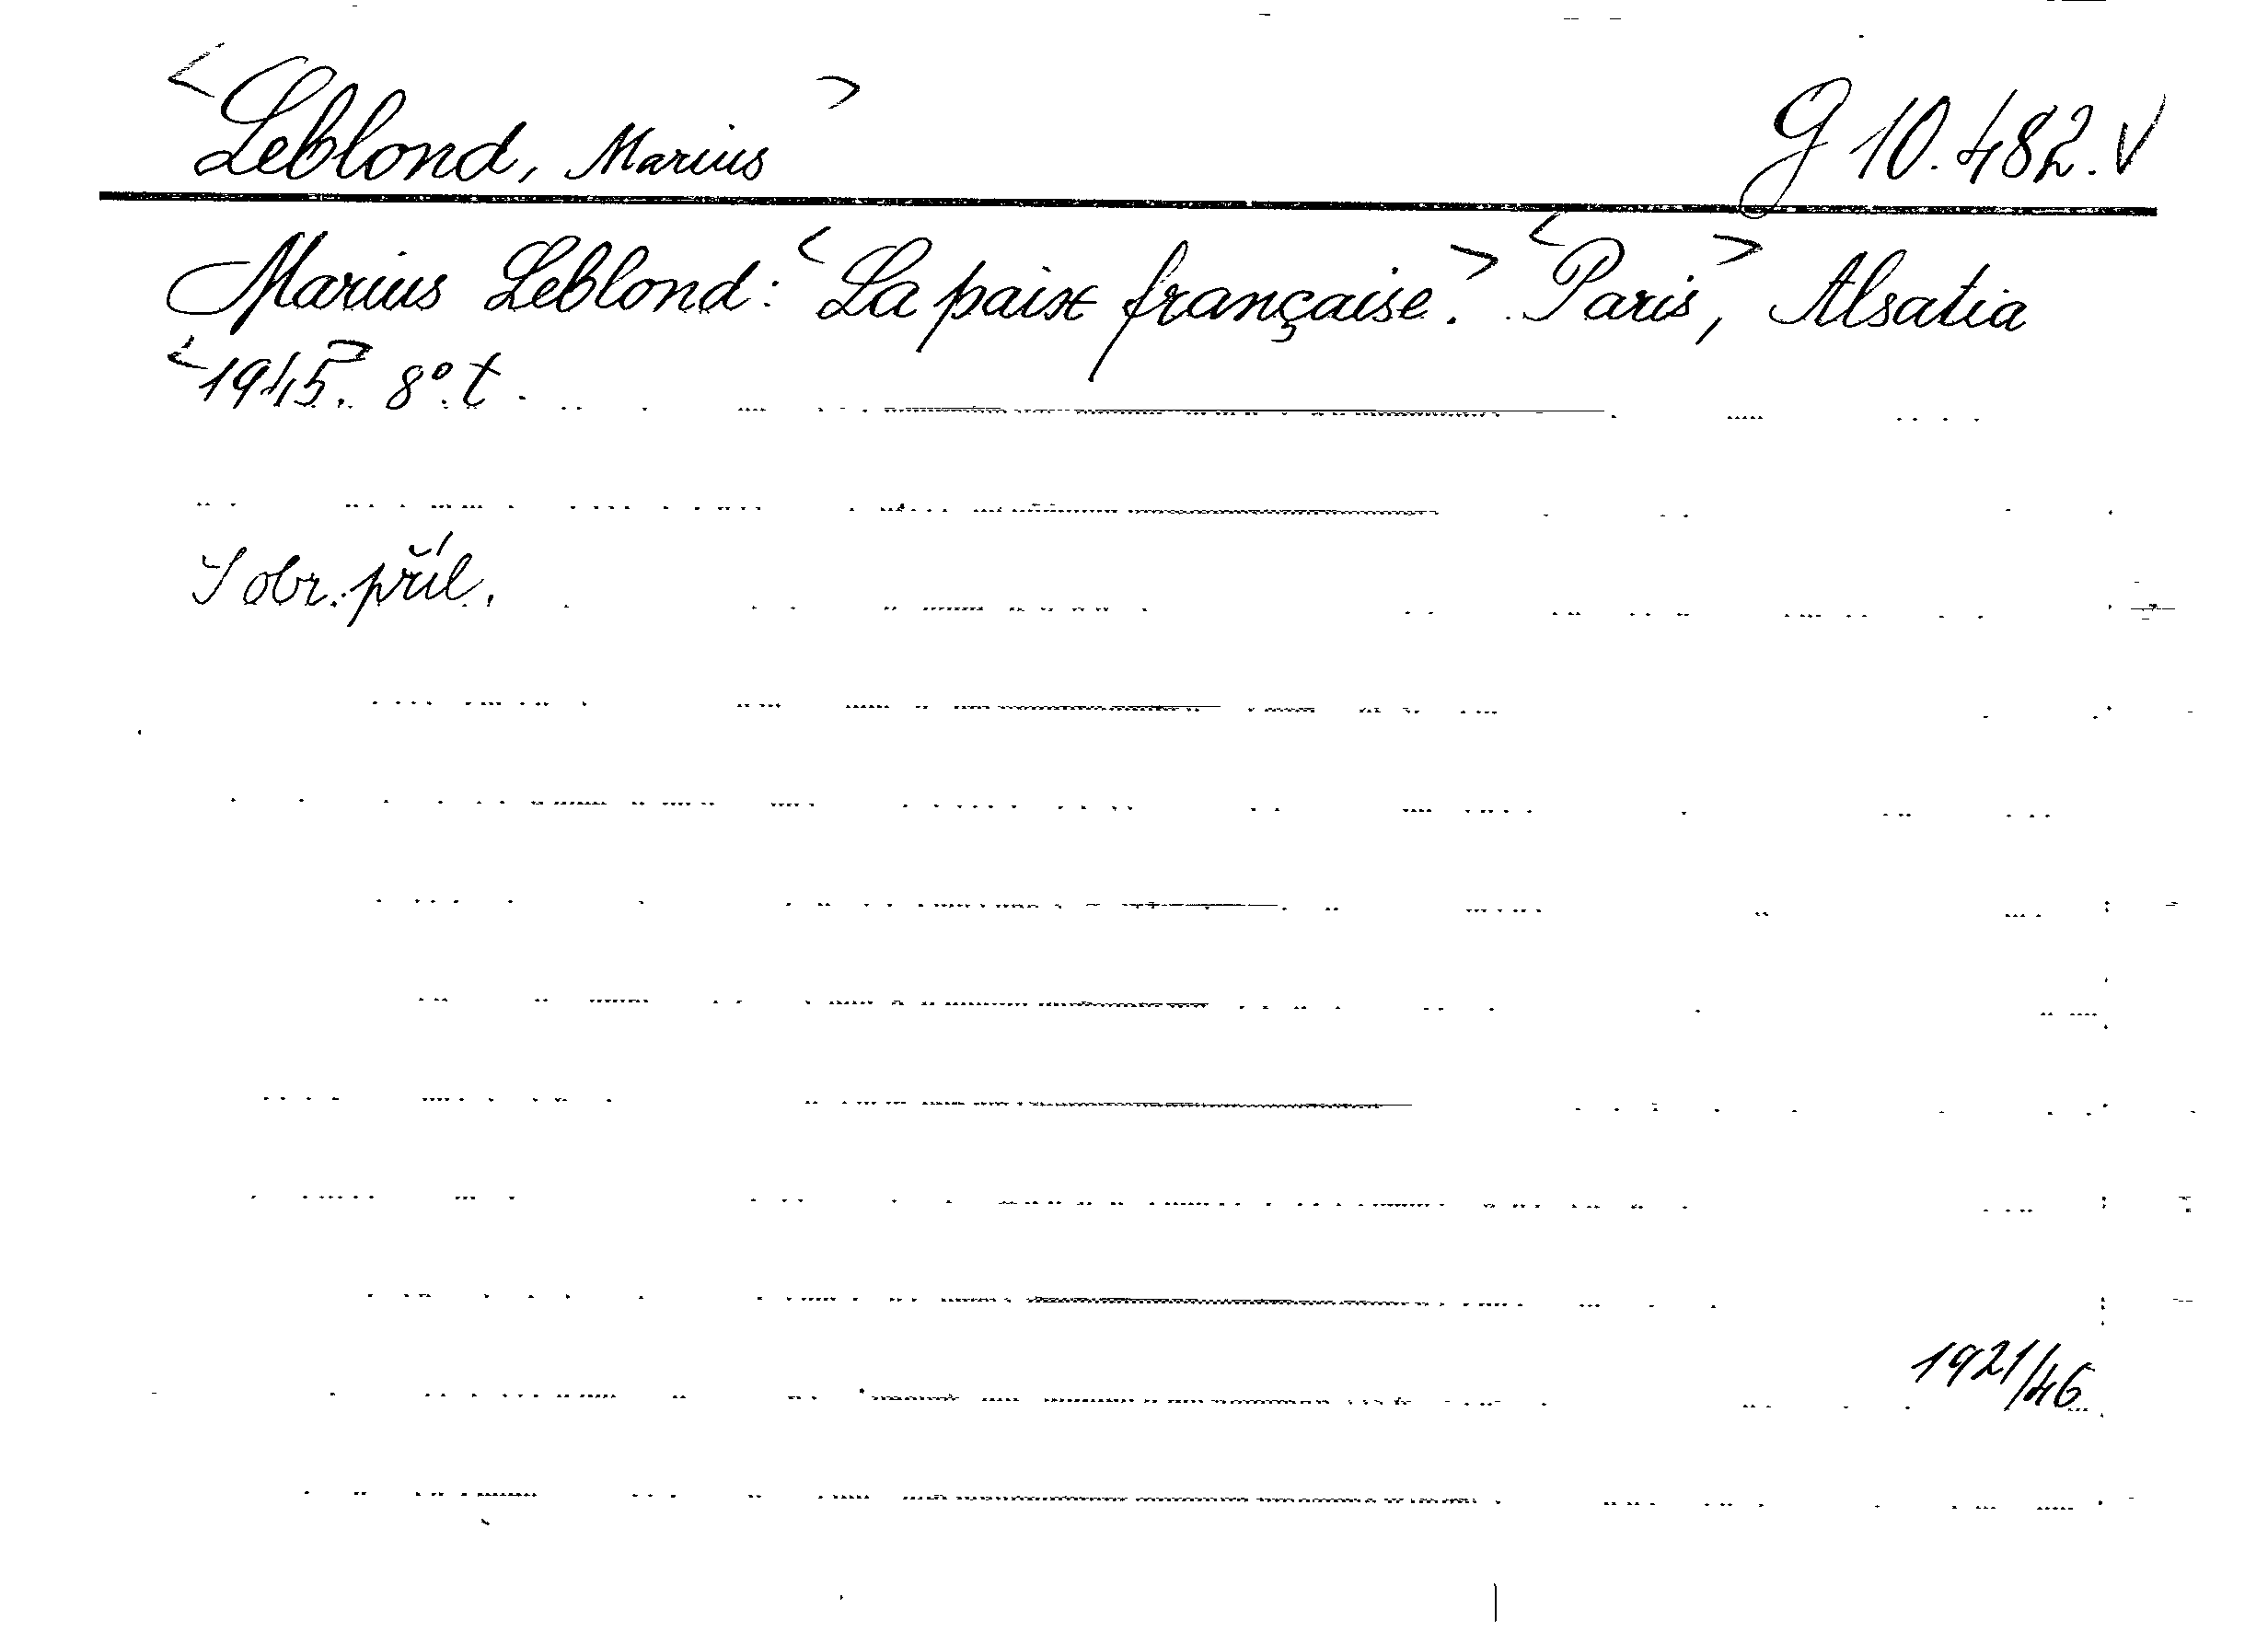 <Leblond, Marius> g 10.482.V
Marius Leblond: <La paix française.> <Paris>, Alsatia
<1945>. 8°. t.
S obr. příl.
1921/46